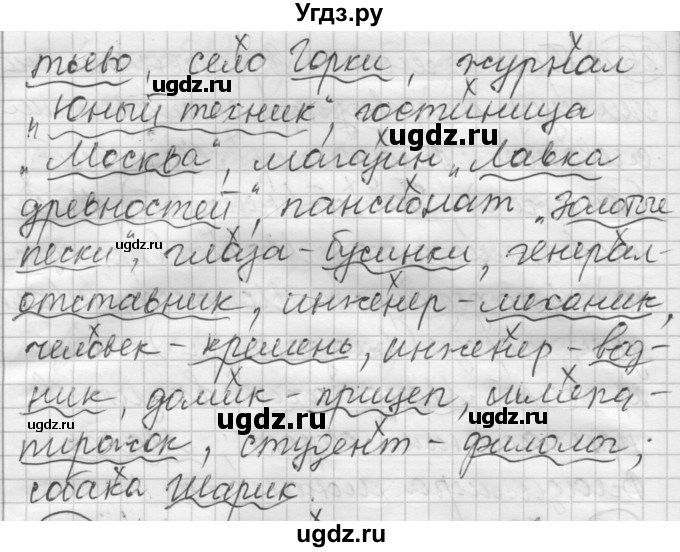 Угдз.ру
тьево, село Горки, журнал
ugdz.ru ugdz.ru
"Юный техник", гостиница
ugdz.ru
"Москва", магазин "Лавка
древностей", пансионат "Золотые
ugdz.ru ugdz.ru
пески", глаза-бусинки, генерал-
отставник, инженер-механик,
человек-кремень, инженер-вод-
ugdz.ru
ник, домик-прицеп, шляпа-
ugdz.ru
пирожок, студент-филолог;
собака Шарик.
ugdz.ru
Угдз.ру